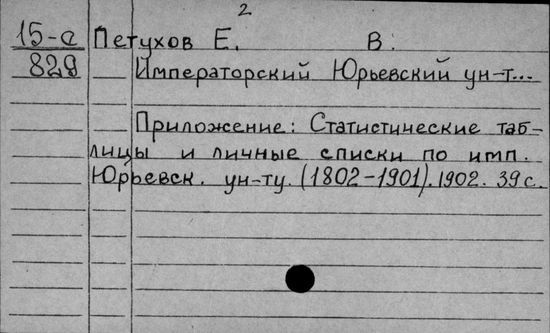 2
15-а Петухов Е. В.
829 Императорский Юрьевский ун-т...
Приложение: Статистические таб-
лицы и личные списки по имп.
Юрьевск. ун-ту. (1802-1901). 1902. 39 с.